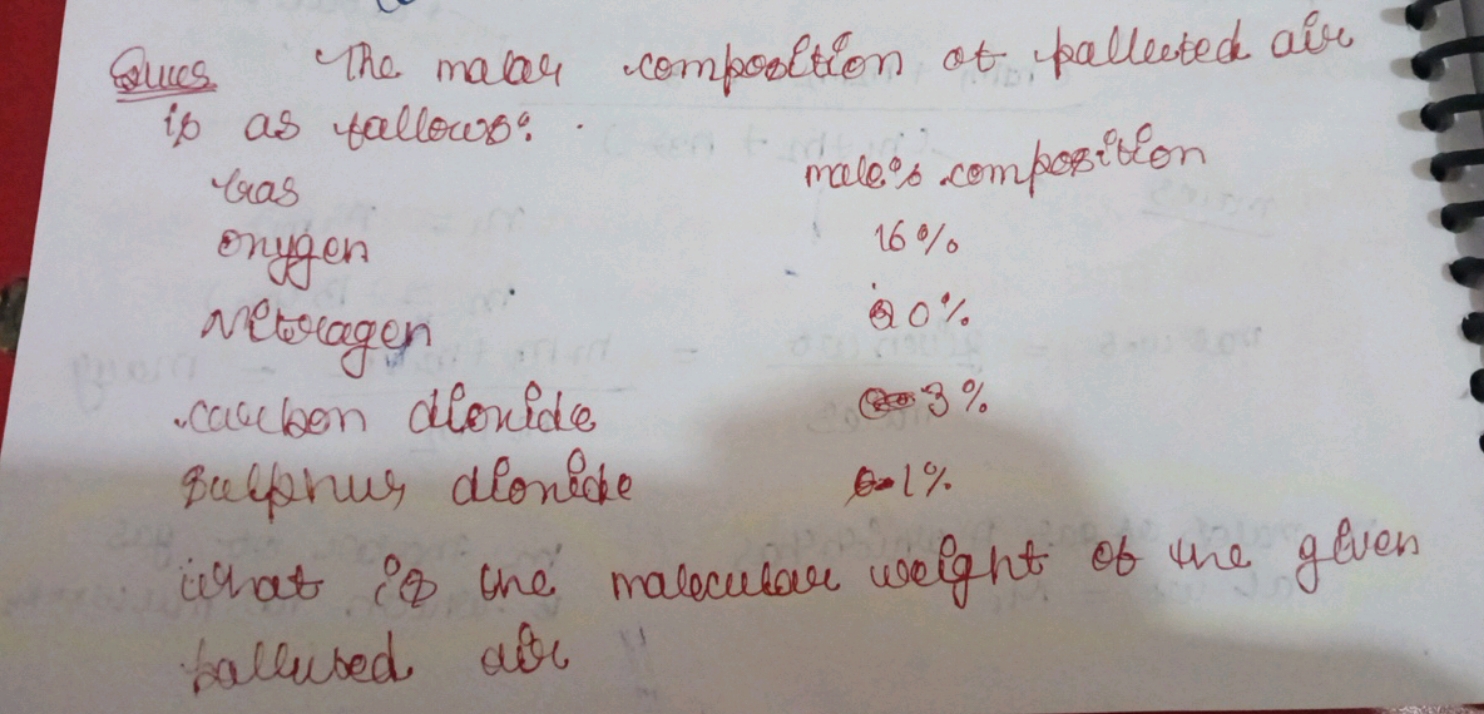 Ques The molar composition of polluted air
is as follows:
Gas mole% composition
oxygen 16%
Nitrogen 80%
carbon dioxide 3%
Sulphur dioxide 1%
What is the molecular weight of the given
polluted air